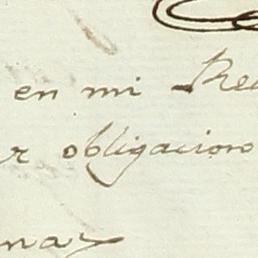 en mi Re
r obligacion
nar